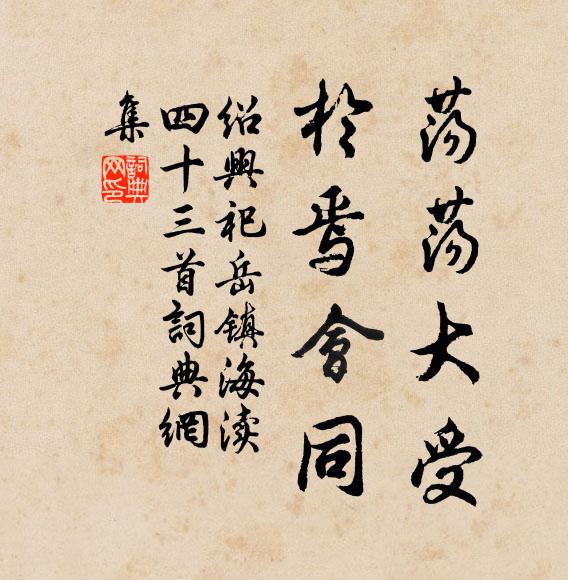 荡荡大受
於焉會同
绍興祀岳镇海渎
四十三首詞典網
集
詞典
网印